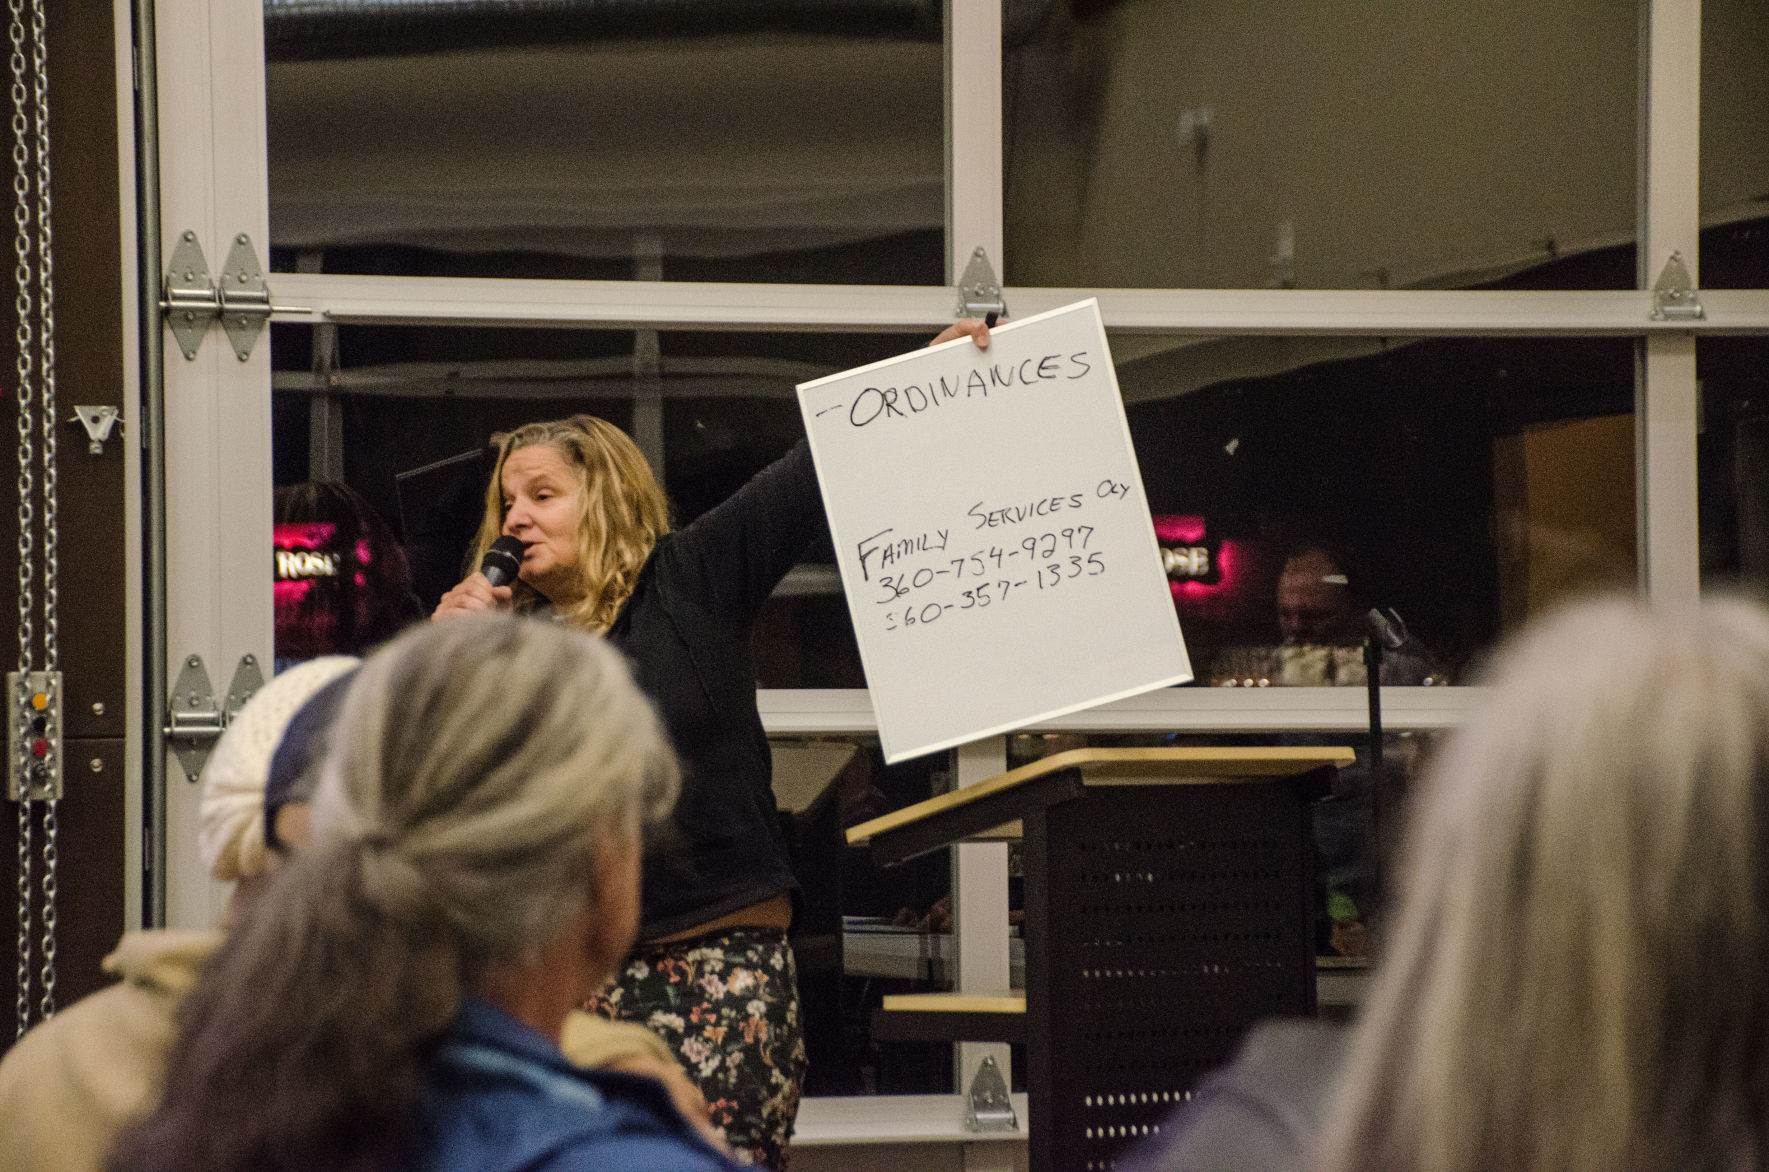 - ORDINANCES
FAMILY SERVICES Oly
360-754-9297
360-357-1335
ROSE
OSE